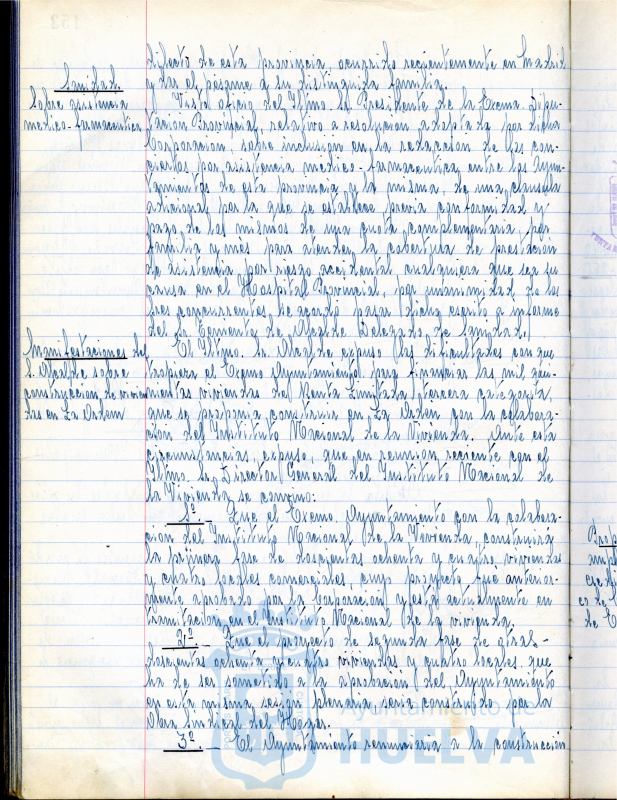 difecto de esta provincia, ocurrido recientemente en Madrid
y dar el pésame a su distinguida familia.
Sanidad.
Sobre asistencia
medico-farmaceutica
Visto oficio del Iltmo. Sr. Presidente de la Excma. Dipu-
tación Provincial, relativo a resolución adoptada por dicha
Corporación, sobre inclusión en la redacción de los con-
ciertos por asistencia medico-farmaceutica, entre los Ayun-
tamientos de esta provincia y la misma, de una clausula
adicional por la que se establece previa conformidad y
pago de los mismos de una cuota complementaria, por
familia y mes para atender la cobertura de prestación
de asistencia, por riesgo accidental cualquiera que sea su
causa en el Hospital Provincial, por unanimidad de los
tres concurrentes, se acordó pasar dicho escrito a informe
del Sr. Teniente de Alcalde Delegado de Sanidad.
Manifestaciones del
S. Alcalde sobre
construcción de vivien-
das en La Orden
El Iltmo. Sr. Alcalde expuso las dificultades con que
tropieza el Excmo. Ayuntamiento para financiar las mil qui-
nientas viviendas de Renta Limitada tercera categoría,
que se proponia construir en La Orden con la colabora-
ción del Instituto Nacional de la Vivienda. Ante esta
circunstancias, expuso, que en reunión reciente con el
Iltmo. Sr. Director General del Instituto Nacional de
la Vivienda se convino:
1º.- Que el Excmo. Ayuntamiento con la colabora-
ción del Instituto Nacional de la Vivienda, construirá
la primera fase de doscientas ochenta y cuatro viviendas
y cuatro locales comerciales, cuyo proyecto fue anterior-
mente aprobado por la Corporación y está actualmente en
tramitación en el Instituto Nacional de la vivienda.
2º.- Que el proyecto de segunda fase de otras-
doscientas ochenta y cuatro viviendas y cuatro locales que
ha de ser sometido a la aprobación del Ayuntamiento
en esta misma sesión plenaria sería construido por la
Obra Sindical del Hogar.
3º.- El Ayuntamiento renunciaría a la construcción
Ayuntamiento de
HUELVA